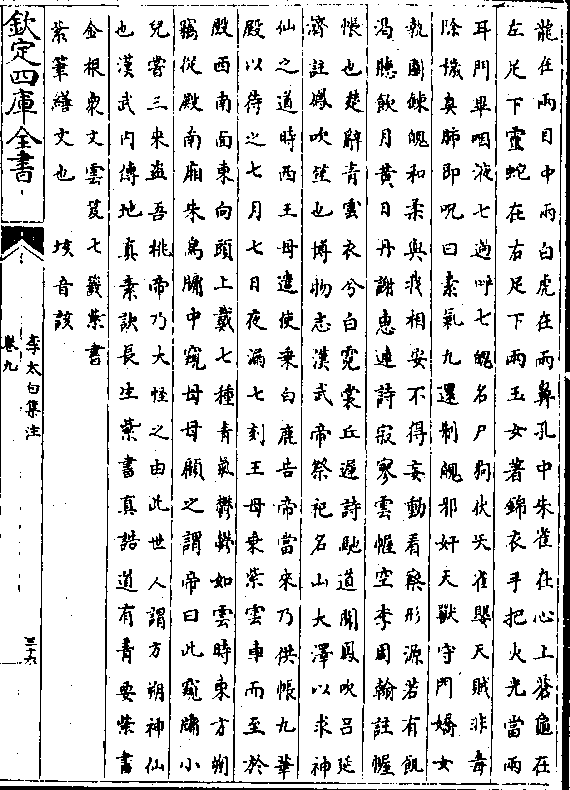 龍在兩目中兩白虎在兩鼻孔中朱雀在心上蒼龜在
左足下靈蛇在右足下兩玉女著錦衣手把火光當兩
耳門畢咽液七過呼七魄名尸狗伏矢雀嬰天賊非毒
除穢臭肺即呪曰素氣九還制魄邪奸天獸守門嬌女
執關鍊魄和柔與我相安不得妄動看察形源若有飢
渴聽飲月黄日丹謝惠連詩寂寥雲幄空李周翰註幄
帳也楚辭青雲衣兮白霓裳丘遲詩馳道聞鳳吹吕延
濟註鳳吹笙也博物志漢武帝祭祀名山大澤以求神
仙之道時西王母遣使乗白鹿告帝當來乃供帳九華
殿以待之七月七日夜漏七刻王母乗紫雲車而至於
殿西南面東向頭上戴七種青氣鬱鬱如雲時東方朔
竊從殿南廂朱鳥牖中窺母母顧之謂帝曰此窺牖小
兒嘗三來盜吾桃帝乃大怪之由此世人謂方朔神仙
也漢武内傳地真素訣長生紫書真誥道有青要紫書
金根衆文雲笈七籖紫書
紫筆繕文也 垓音該
欽定四庫全書
李太白集注
卷九
三十六